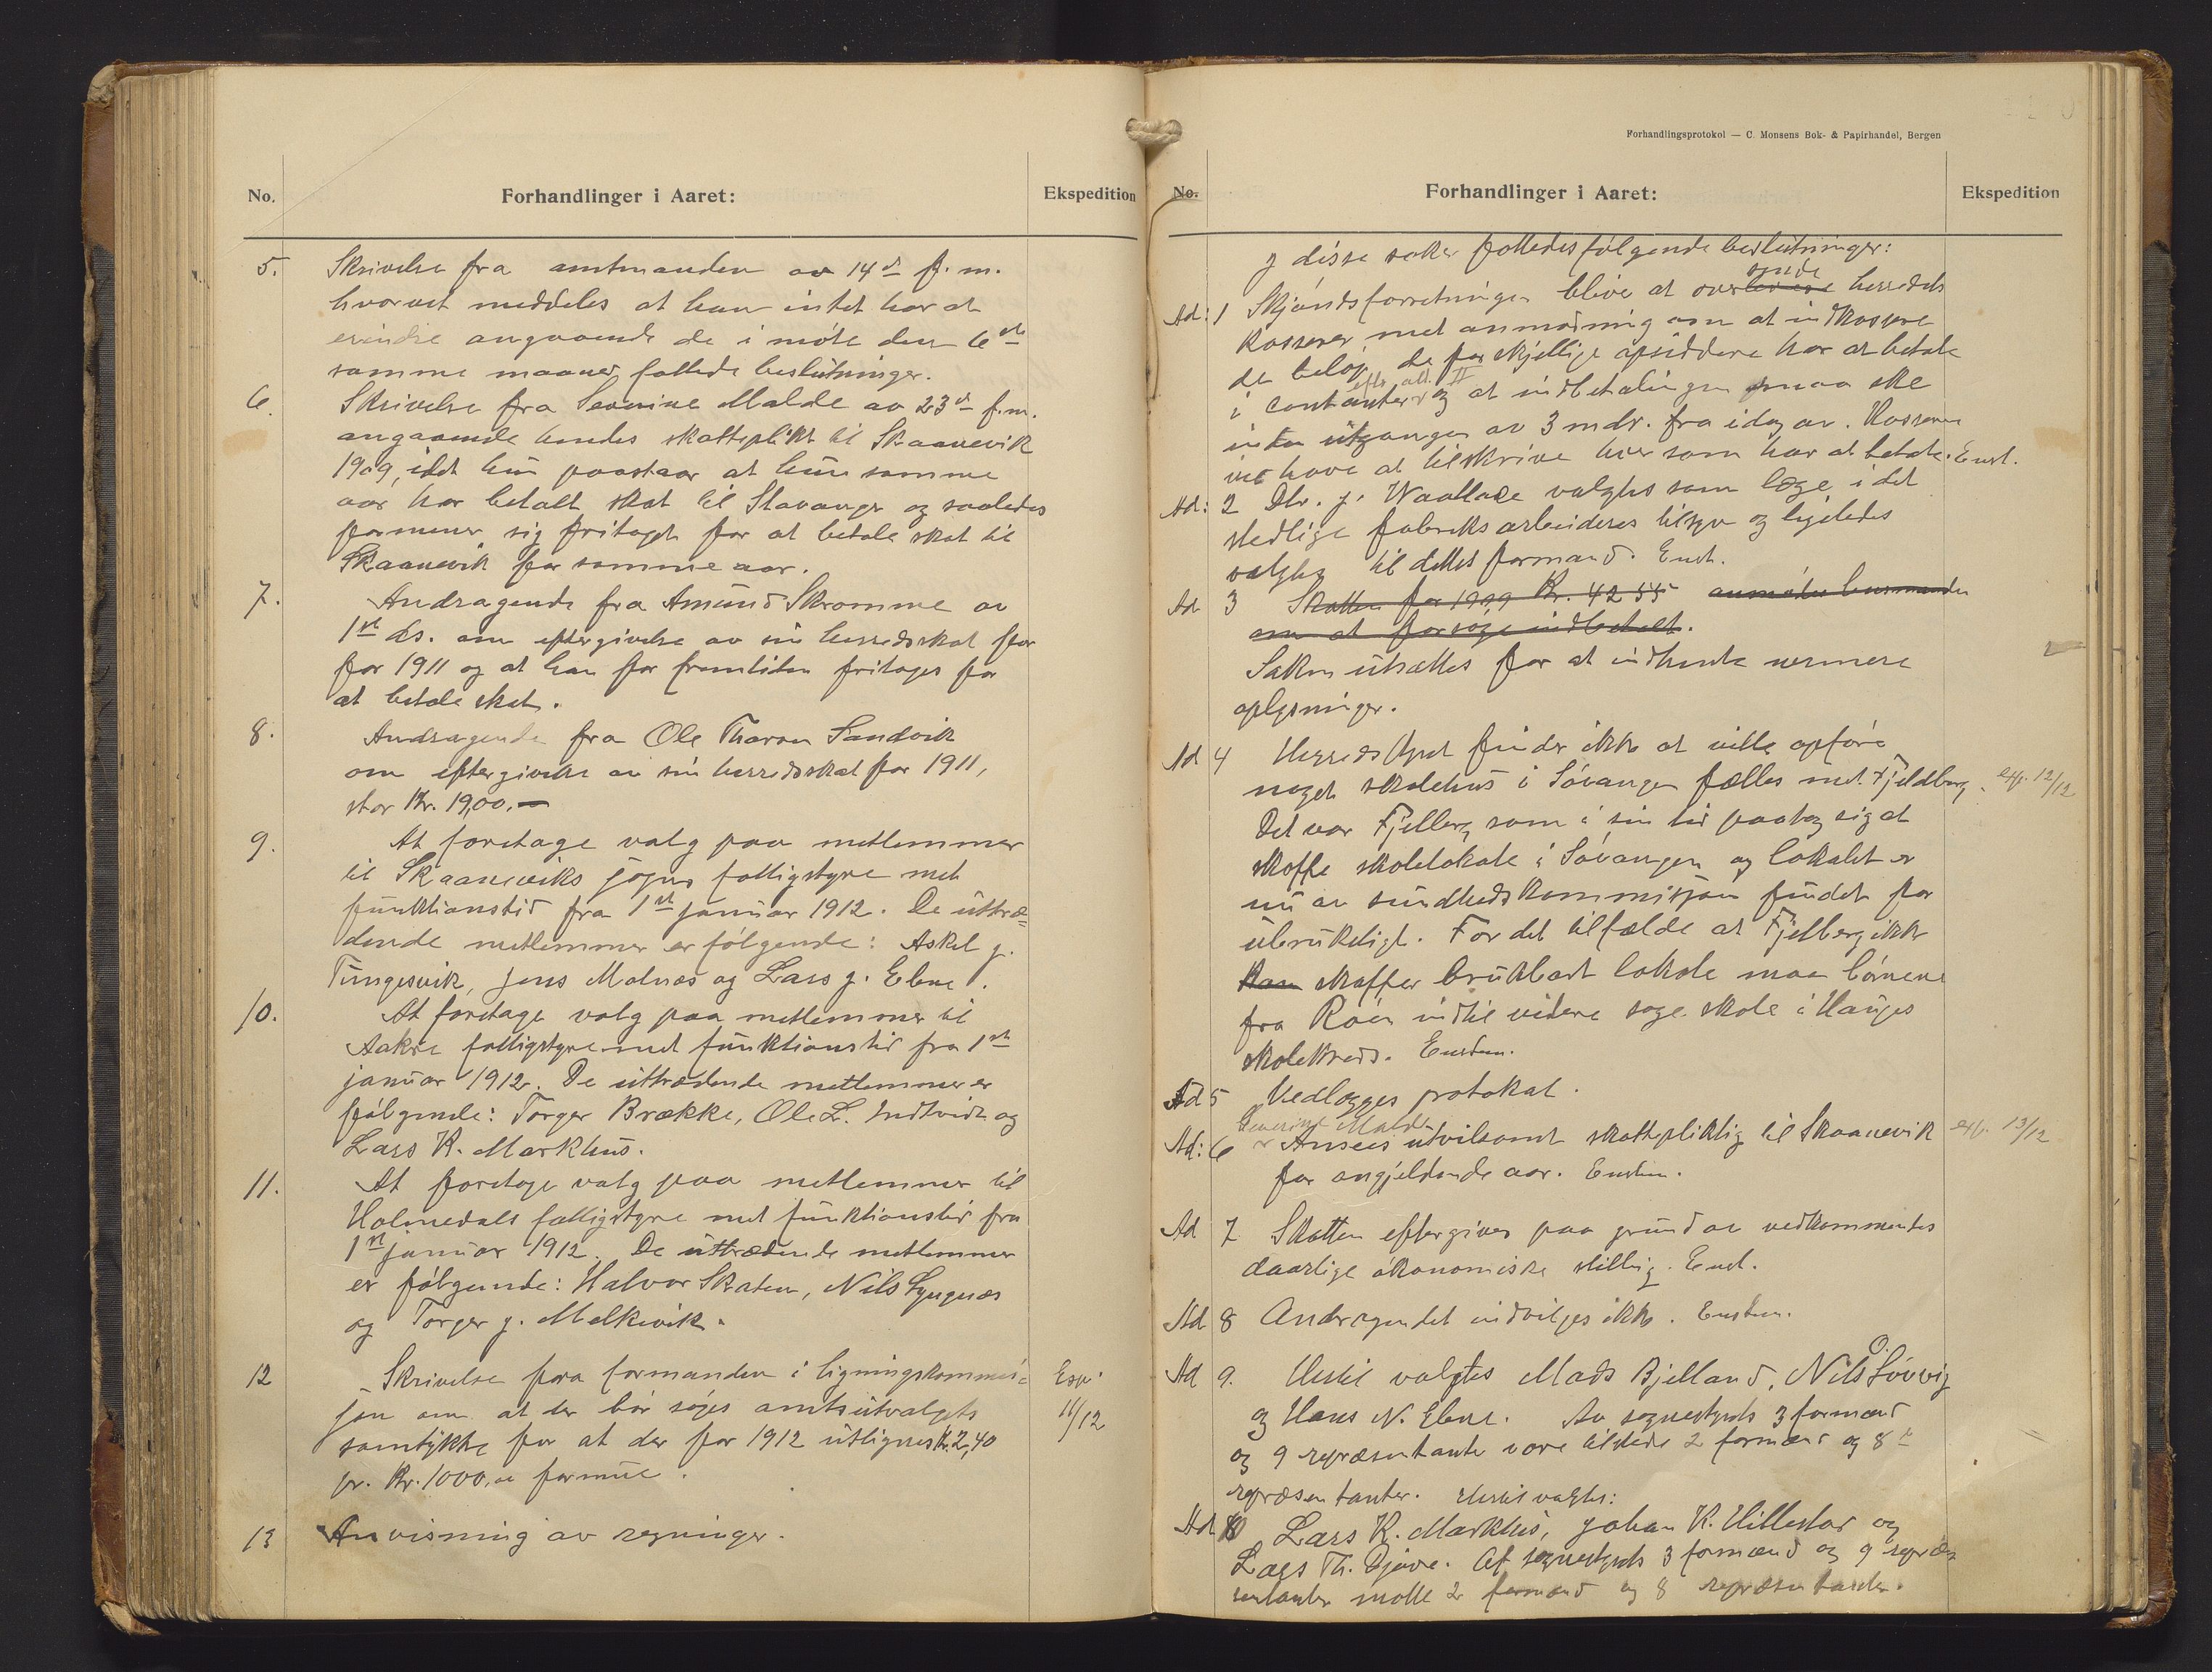 No.
Forhandlinger i Aaret:
Ekspedition
5. Skrivelse fra amtmanden av 14de f. m.
hvorved meddeles at han intet har at
erindre angaaende de i møte den 6te
samme maaned fattede beslutninger.
6. Skrivelse fra Severine Malde av 23de f.m.
angaaende hendes skattepligt til Skaanevik
1909, idet hun paastaar at hun samme
aar har betalt skat til Stavanger og saaledes
formener sig fritaget for at betale skat til
Skaanevik for samme aar.
7. Andragende fra Amund Skromme av
1ste ds. om eftergivelse av sin herredsskat for
for 1911 og at han for fremtiden fritages for
at betale skat.
8. Andragende fra Ole Thoran Sandvik
om eftergivelse av sin herredsskat for 1911,
stor Kr. 19,00.
9. At foretage valg paa medlemmer
til Skaaneviks sogns fattigstyre med
funktionstid fra 1ste januar 1912. De uttræ-
dende medlemmer er følgende: Askel J.
Tungesvik, Jens Molnes og Lars J. Ebne.
10. At foretage valg paa medlemmer til
Aakre fattigstyre med funktionstid fra 1ste
januar 1912. De uttrædende medlemmer er
følgende: Torger Brække, Ole L. Indtveit og
Lars K. Markhus.
11. At foretage valg paa medlemmer til
Holmedals fattigstyre med funktionstid fra
1ste januar 1912. De uttrædende medlemmer
er følgende: Halvor Skaten, Nils Lyngnes
og Torger J. Melkevik.
12 Skrivelse fra formanden i ligningskommis-
jon om at der bør søges amtsutvalgets
samtykke for at der for 1912 utlignes Kr. 2,40
pr. Kr. 1000,00 formue.
Exp.
11/12
13 Anvisning av regninger.
Forhandlingsprotokol — C. Monsens Bok- & Papirhandel, Bergen
No.
Forhandlinger i Aaret:
Ekspedition
J disse saker fattedes følgende beslutninger:
sende
Ad: 1 Skjøndsforretningen blive at overlevere herredets
kasserer med anmodning om at indkassere
de beløp de forskjellige opsiddere har at betale
i contanter og at indbetalingen maa ske
inden utgangen av 3 mdr. fra idag av. Kasserer
vil have at tilskrive hver som har at betale. Enst.
Ad: 2 Dhr. J. Waallace valgtes som læge i det
stedlige fabriksarbeideres tilsyn og ligeledes
valgtes til dettes formand. Enst.
Ad 3 Skatten for 1909 Kr. 42 55 anmodes lensmanden
om at forsøge indbetalt.
Saken utsættes for at indhente nermere
oplysninger.
Ad 4 Herredstyret finder ikke at ville opføre
noget skolehus i Søvangen fælles med Fjeldberg.
exp. 12/12
Det var Fjelberg som i sin tid paatog sig at
skaffe skolelokale i Søvangen og lokalet er
nu av sundhedskommisjon fundet for
ubrukeligt. For det tilfælde at Fjelberg ikke
kan skaffer brukbart lokale maa børnene
fra Røen indtil videre søge skole i Hauges
skolekreds. Enstem.
Ad 5 Vedlægges protokol.
Severine Malde
Ad: 6 Ansees utvilsomt skattepliktig til Skaanevik
exp. 13/12
for angjeldende aar. Enstem.
Ad 7 Skatten eftergives paa grund av vedkommendes
daarlige økonomiske stilling. Enst.
Ad 8 Andragendet indvilges ikke. Enstem.
Ad 9. Hertil valgtes Mads Bjelland, Nils O. Søvig
og Hans N. Ebne. Av sognestyrets 3 formænd
og 9 repræsentanter vare tilstede 2 formænd og 8
repræsentanter. Hertil valgtes:
Ad 10 Lars K. Markhus, Johan K. Hillestad og
Lars Th. Djuve. Af sognestyrets 3 formænd og 9 repræ-
sentanter møtte 2 formænd og 8 repræsentanter.